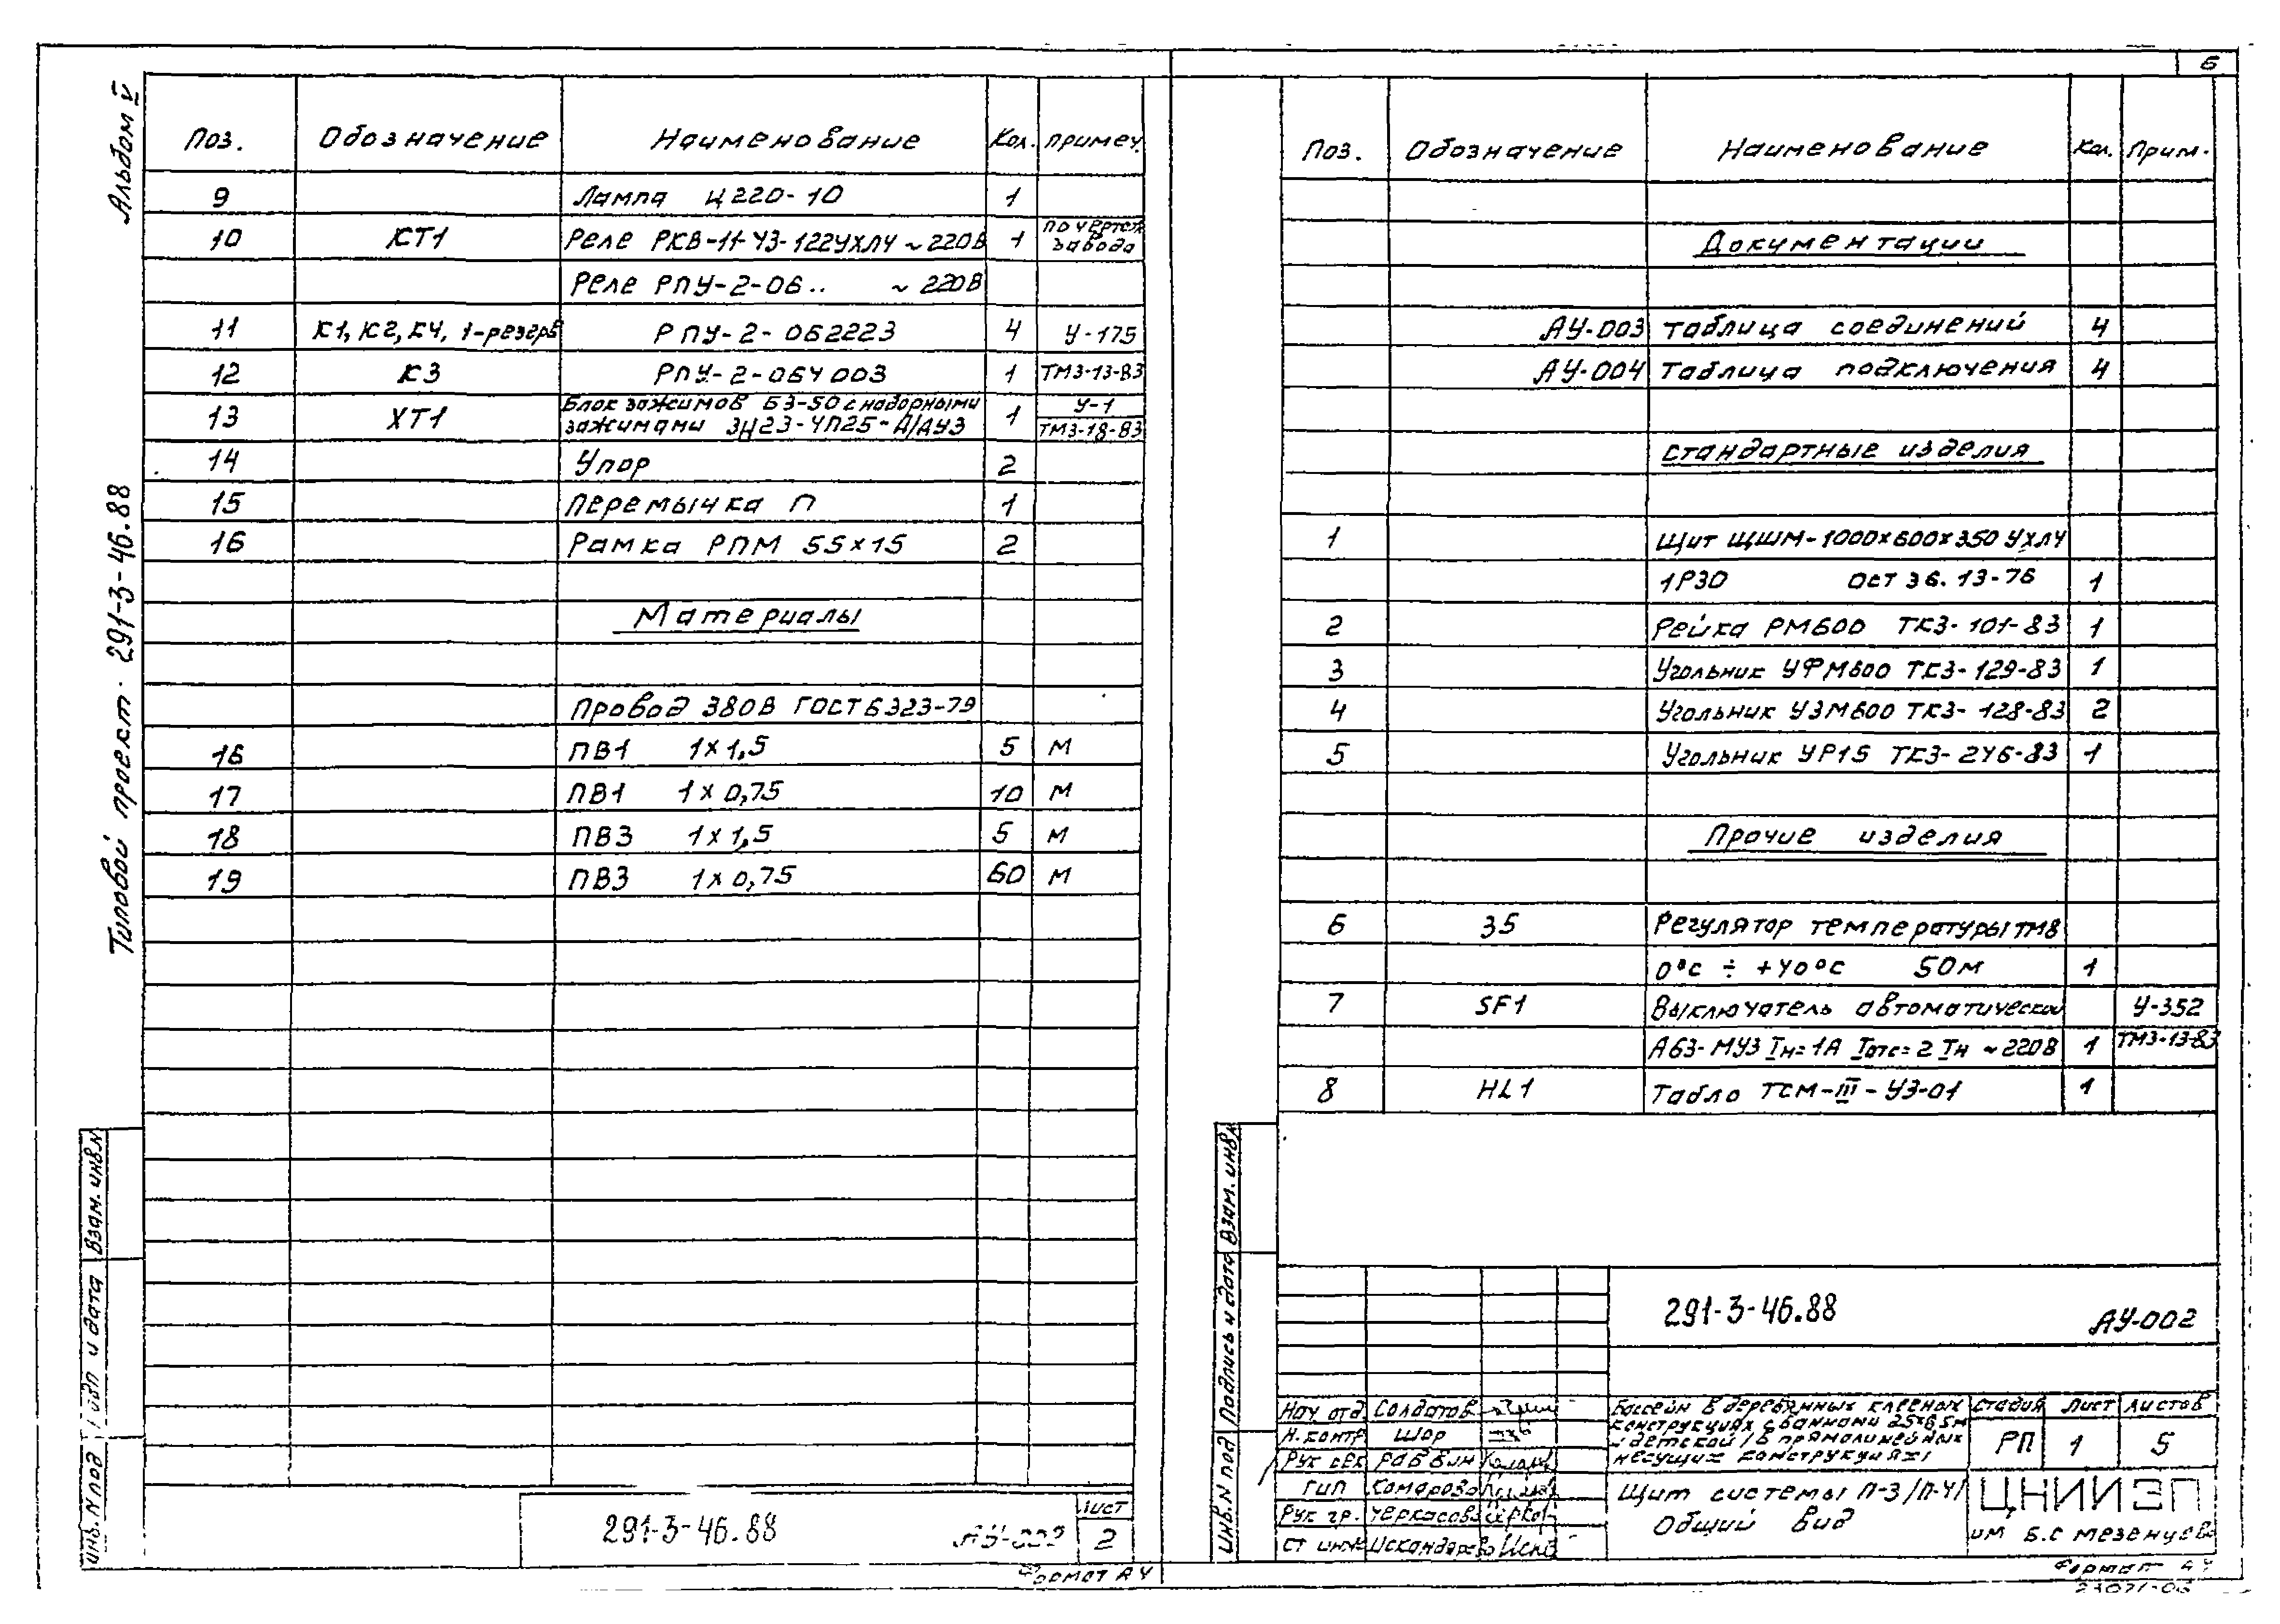 6
Альбом V
Типовой проект 291-3-46.88
Поз. Обозначение Наименование Кол. примеч.
9 Лампа Ц220-10 1
10 КТ1 Реле РКВ-11-У3-122УХЛ4 ~220В 1 по чертеж завода
Реле РПУ-2-06.. ~220В
11 К1, К2, К4, 1-резерв РПУ-2-062223 4 У-175
12 К3 РПУ-2-064003 1 ТМ3-13-83
13 ХТ1 Блок зажимов БЗ-50 с наборными 1 У-1
зажимами ЗН23-4П25-Д/ДУ3 ТМ3-18-83
14 Упор 2
15 Перемычка П 1
16 Рамка РПМ 55х15 2
Материалы
Провод 380В ГОСТ 6323-79
16 ПВ1 1х1,5 5 м
17 ПВ1 1х0,75 10 м
18 ПВ3 1х1,5 5 м
19 ПВ3 1х0,75 60 м
Взам. инв. N
Подп и дата
Инв. N под
291-3-46.88
Лист
2
Формат А4
Поз. Обозначение Наименование Кол. Прим.
Документации
АУ-003 Таблица соединений 4
АУ-004 Таблица подключения 4
Стандартные изделия
1 Щит ЩШМ-1000х600х350 УХЛ4
1Р30 ОСТ 36.13-76 1
2 Рейка РМ600 ТК3-101-83 1
3 Угольник УФМ600 ТК3-129-83 1
4 Угольник УЗМ600 ТК3-128-83 2
5 Угольник УР15 ТК3-246-83 1
Прочие изделия
6 35 Регулятор температуры ТМ8
0°С ÷ +40°С 50М 1
7 SF1 Выключатель автоматический У-352
А63-МУ3 Iн=1А Iотс=2 Iн ~220В 1 ТМ3-13-83
8 HL1 Табло ТСМ-III-У3-01 1
Взам. инв. N
Подпись и дата
Инв. N под
291-3-46.88
АУ-002
Нач отд Солдатов
Н. контр Шор
Рук сек Раббин
ГИП Комарова
Рук гр. Черкасова
Ст инж Искандерова
Бассейн в деревянных клееных
конструкциях с ваннами 25х8,5м
и детской /в прямолинейных
несущих конструкциях/
Стадия Лист Листов
РП 1 5
Щит системы П-3/П-4/
Общий вид
ЦНИИЭП
им Б.С Мезенцева
Формат А4